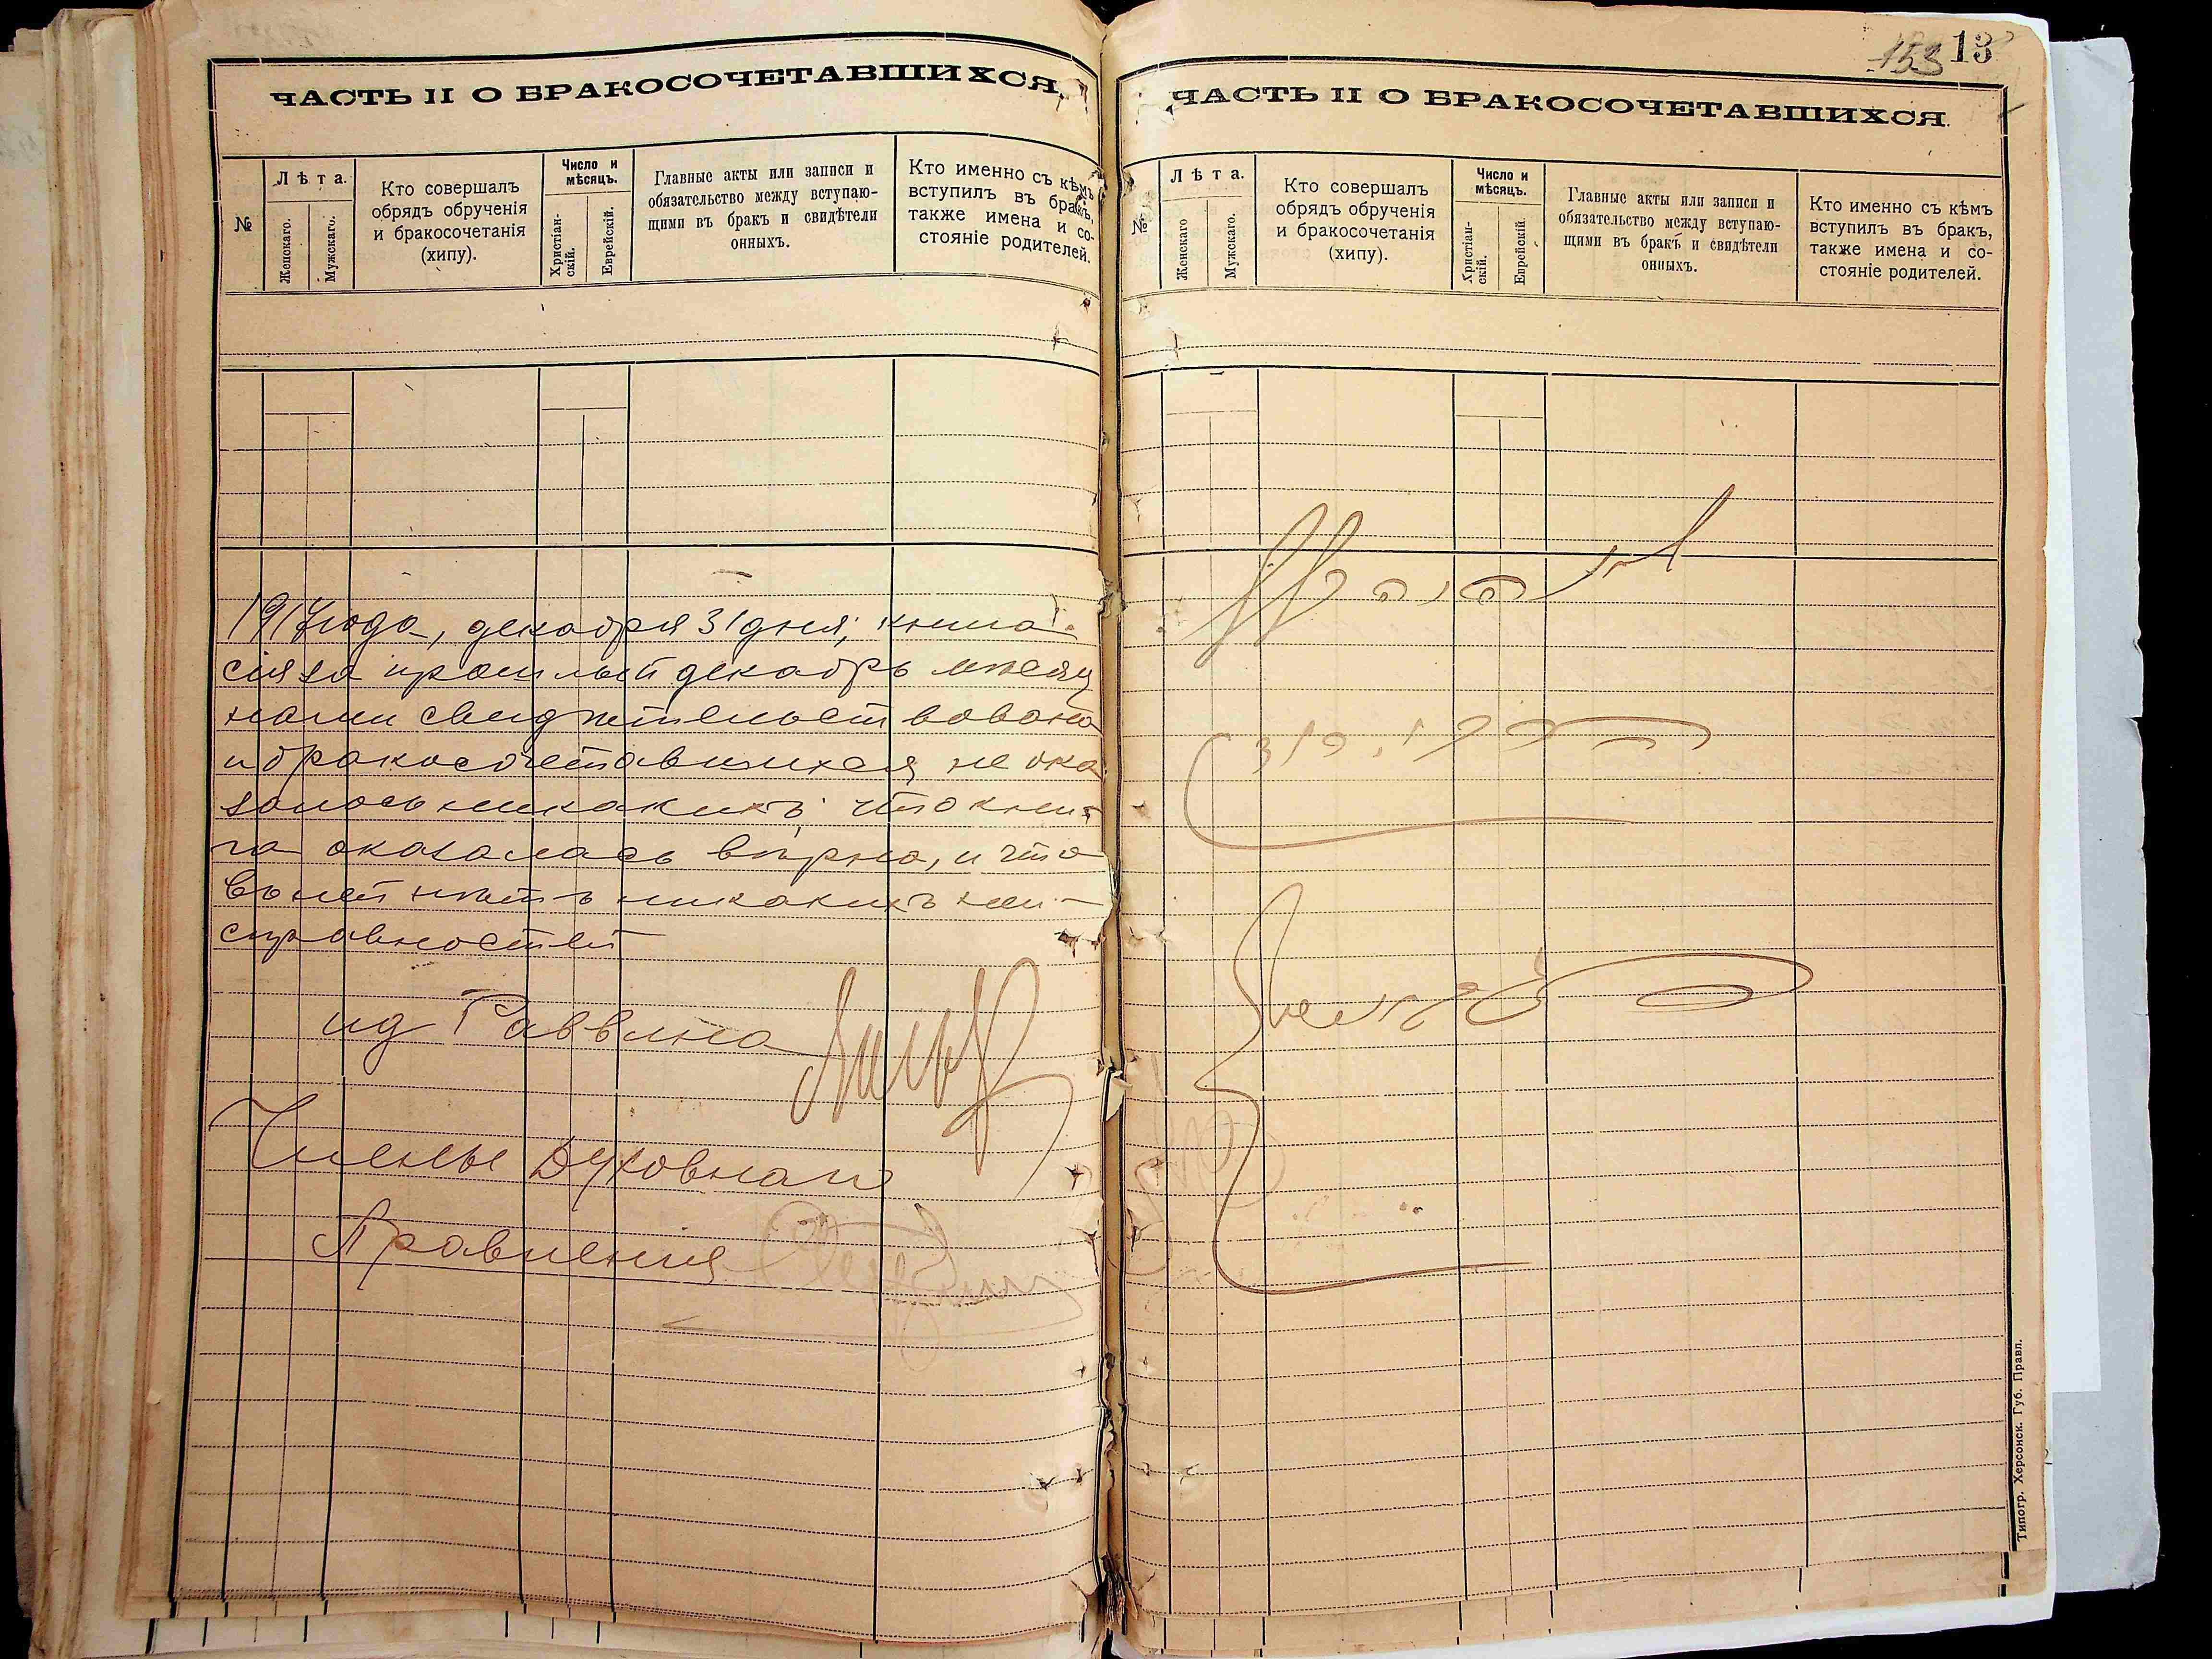 ЧАСТЬ II О БРАКОСОЧЕТАВШИХСЯ.
№
Лѣта.
Женскаго.
Мужскаго.
Кто совершалъ
обрядъ обрученія
и бракосочетанія
(хипу).
Число и
мѣсяцъ.
Христіан-
скій.
Еврейскій.
Главные акты или записи и
обязательство между вступаю-
щими въ бракъ и свидѣтели
онныхъ.
Кто именно съ кѣмъ
вступилъ въ бракъ,
также имена и со-
стояніе родителей.
1917 года, декабря 31 дня, книга
сія за прошлый декабрь мѣсяц
нами свидѣтельствована
и бракосочетавшихся не ока
залось никакихъ, что кни-
га оказалась вѣрна, и что
въ ней нѣтъ никакихъ неи-
справностей
ид Раввина
Члены Духовнаго
Правленія
153 13
ЧАСТЬ II О БРАКОСОЧЕТАВШИХСЯ.
№
Лѣта.
Женскаго
Мужскаго.
Кто совершалъ
обрядъ обрученія
и бракосочетанія
(хипу).
Число и
мѣсяцъ.
Христіан-
скій.
Еврейскій.
Главные акты или записи и
обязательство между вступаю-
щими въ бракъ и свидѣтели
онныхъ.
Кто именно съ кѣмъ
вступилъ въ бракъ,
также имена и со-
стояніе родителей.
Типогр. Херсонск. Губ. Правл.